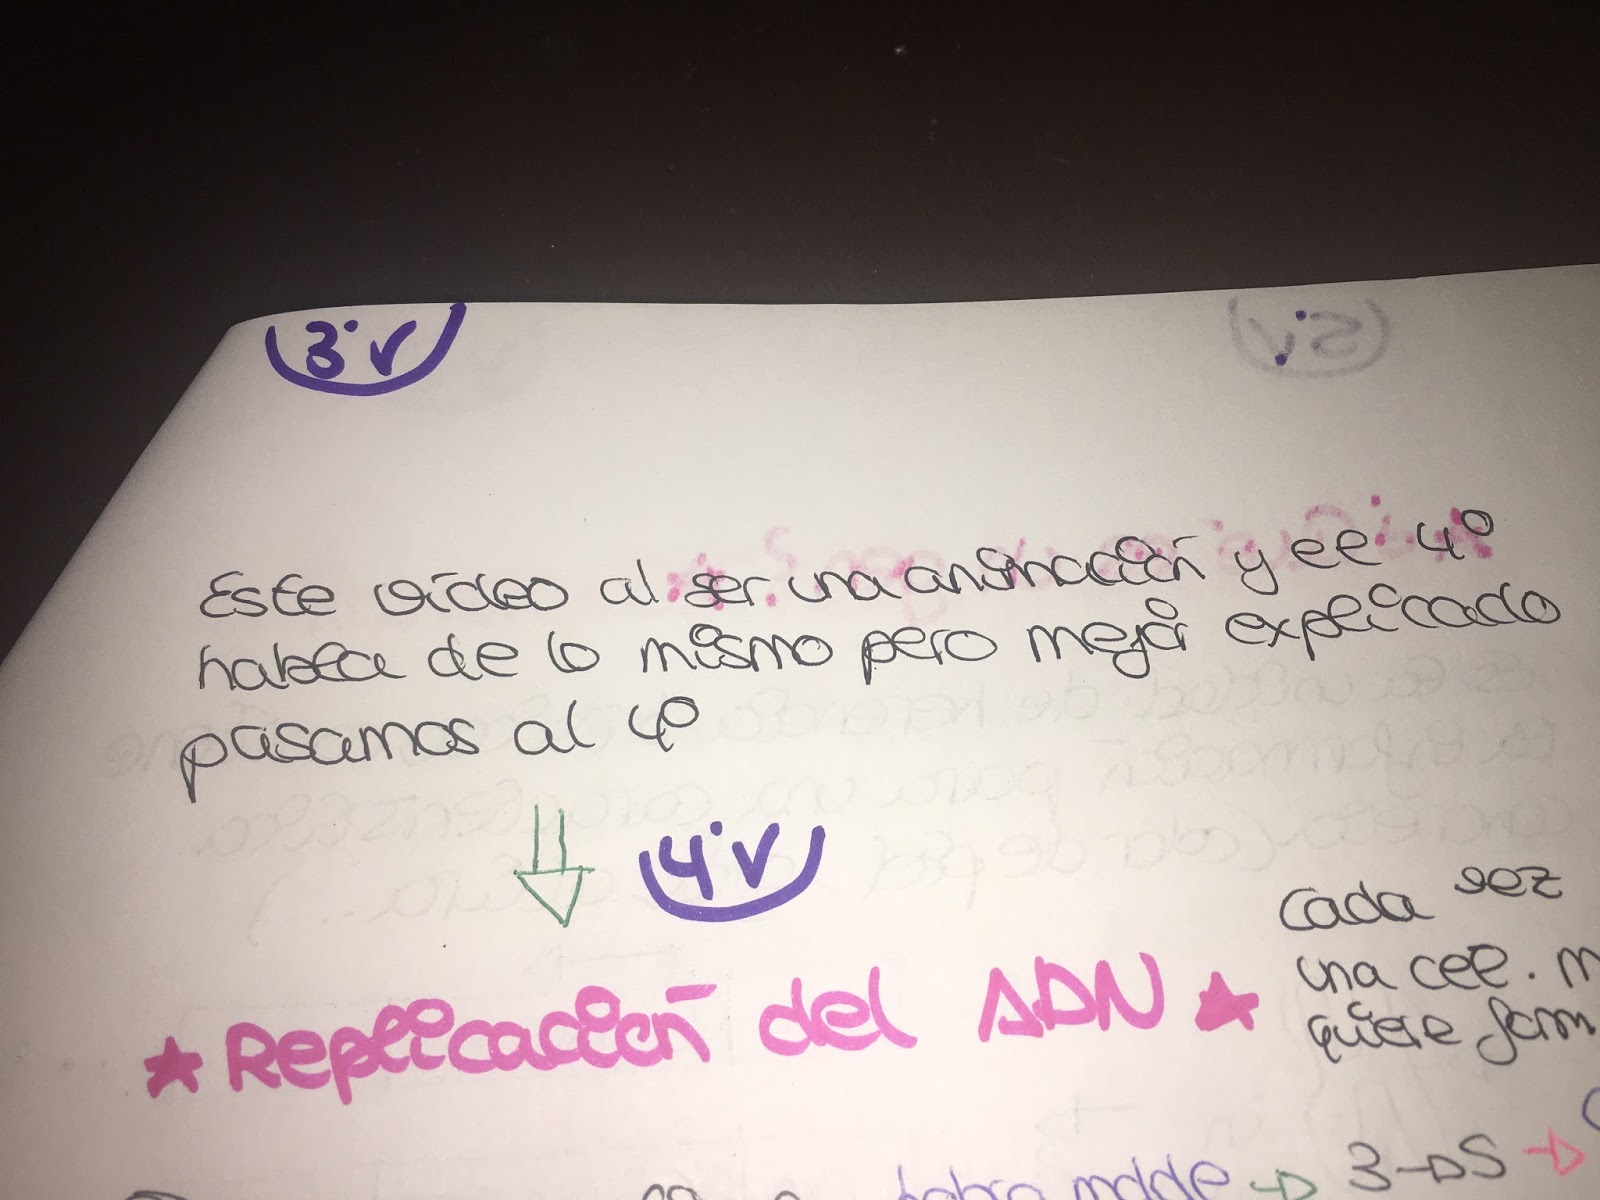 3·V
Este vídeo al ser una animación y el 4º
habla de lo mismo pero mejor explicado
pasamos al 4º
4·V
Replicación del ADN
cada vez
una cel. m
quiere form
hebra molde → 3→5 →